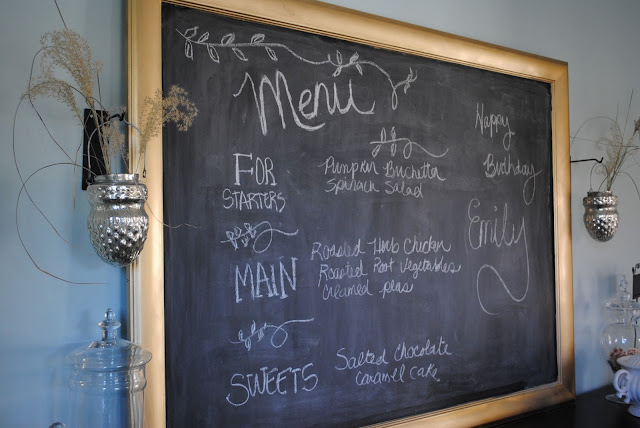 Menu
FOR
STARTERS
Pumpkin Bruchetta
Spinach Salad
MAIN
Roasted Herb Chicken
Roasted Root Vegetables
Creamed peas
SWEETS
Salted Chocolate
Caramel Cake
Happy
Birthday
Emily